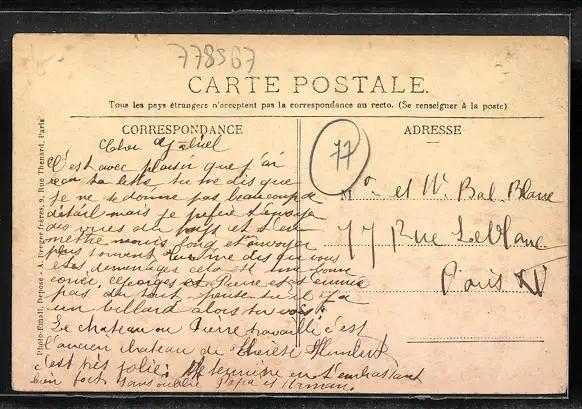 778567
CARTE POSTALE.
Tous les pays étrangers n'acceptent pas la correspondance au recto. (Se renseigner à la poste)
CORRESPONDANCE
Cher
C'est avec plaisir que j'ai
ta lettre, tu me dis que
je ne te donne pas beaucoup de
détail mais je préfère t'envoyer
des vues du pays et t'en
mettre moins long et t'envoyer
plus souvent tu me dis que vous
déménagez cela est une bonne
corvée, Georges et Pierre
pas du tout il y a
un billard alors tu vois!
Le chateau ou Pierre travaille c'est
l'ancien chateau de Thérèse Humbert
c'est très jolie. Je termine en t'embrassant
bien fort sans oublier Papa et Maman.
ADRESSE
77
Mr et Me Bal Blanc
77 Rue Leblanc
Paris XV
Photo-Email. Déposé - A. Berger frères, 9, Rue Thénard, Paris